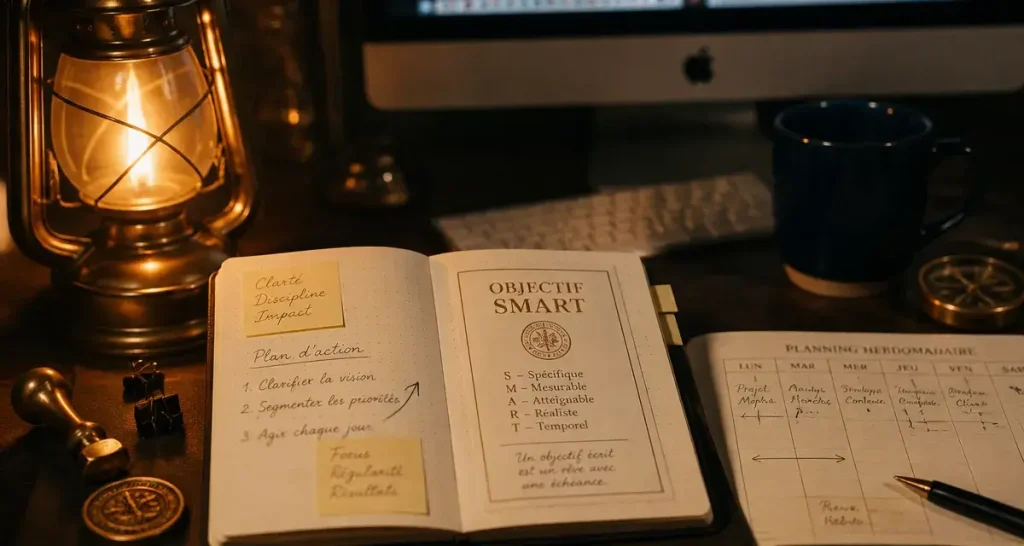 Clarté
Discipline
Impact
Plan d'action
1. Clarifier la vision
2. Segmenter les priorités
3. Agir chaque jour
Focus
Régularité
Résultats
OBJECTIF
SMART
S – Spécifique
M – Mesurable
A – Atteignable
R – Réaliste
T – Temporel
Un objectif écrit
est un rêve avec
une échéance.
PLANNING HEBDOMADAIRE
LUN MAR MER JEU VEN
Projet